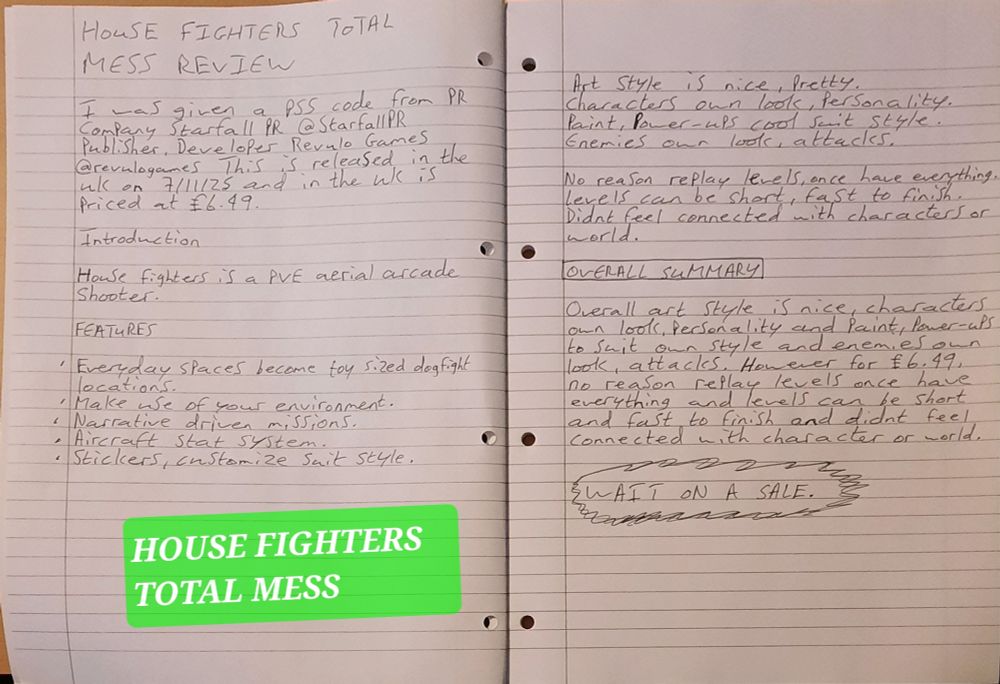 HOUSE FIGHTERS TOTAL
MESS REVIEW
I was given a PS5 code from PR
Company Starfall PR @StarfallPR
Publisher, Developer Revulo Games
@revulogames This is released in the
uk on 7/11/25 and in the uk is
Priced at £6.49.
Introduction
House fighters is a PVE aerial arcade
Shooter.
FEATURES
• Everyday spaces become toy sized dogfight
locations.
• Make use of your environment.
• Narrative driven missions.
• Aircraft stat system.
• Stickers, customize suit style.
HOUSE FIGHTERS
TOTAL MESS
Art style is nice, Pretty.
Characters own look, Personality.
Paint, Power-ups cool suit style.
Enemies own look, attacks.
No reason replay levels, once have everything.
Levels can be short, fast to finish.
Didnt feel connected with characters or
world.
OVERALL SUMMARY
Overall art style is nice, characters
own look, Personality and Paint, Power-ups
to suit own style and enemies own
look, attacks. However for £6.49,
no reason replay levels once have
everything and levels can be short
and fast to finish and didnt feel
connected with character or world.
WAIT ON A SALE.